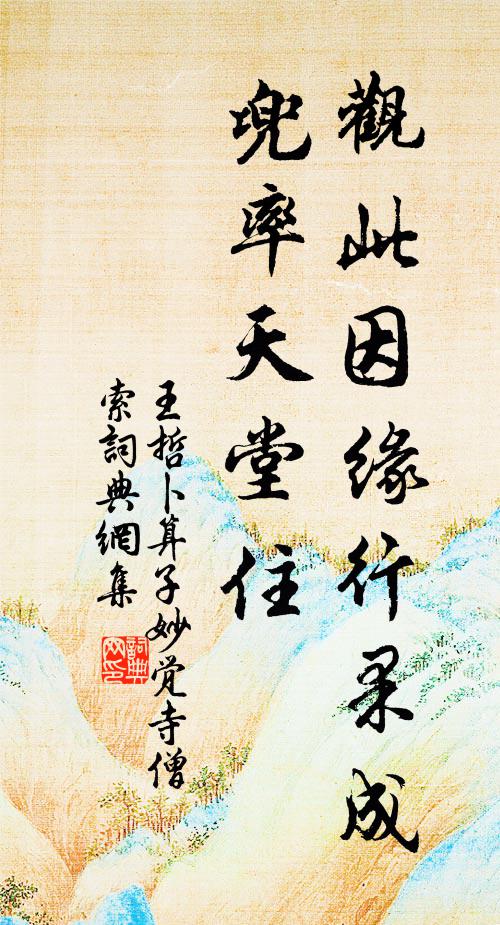 觀此因緣行果成
兜率天堂住
王哲卜算子妙觉寺僧
索詞典網集
詞典
网印